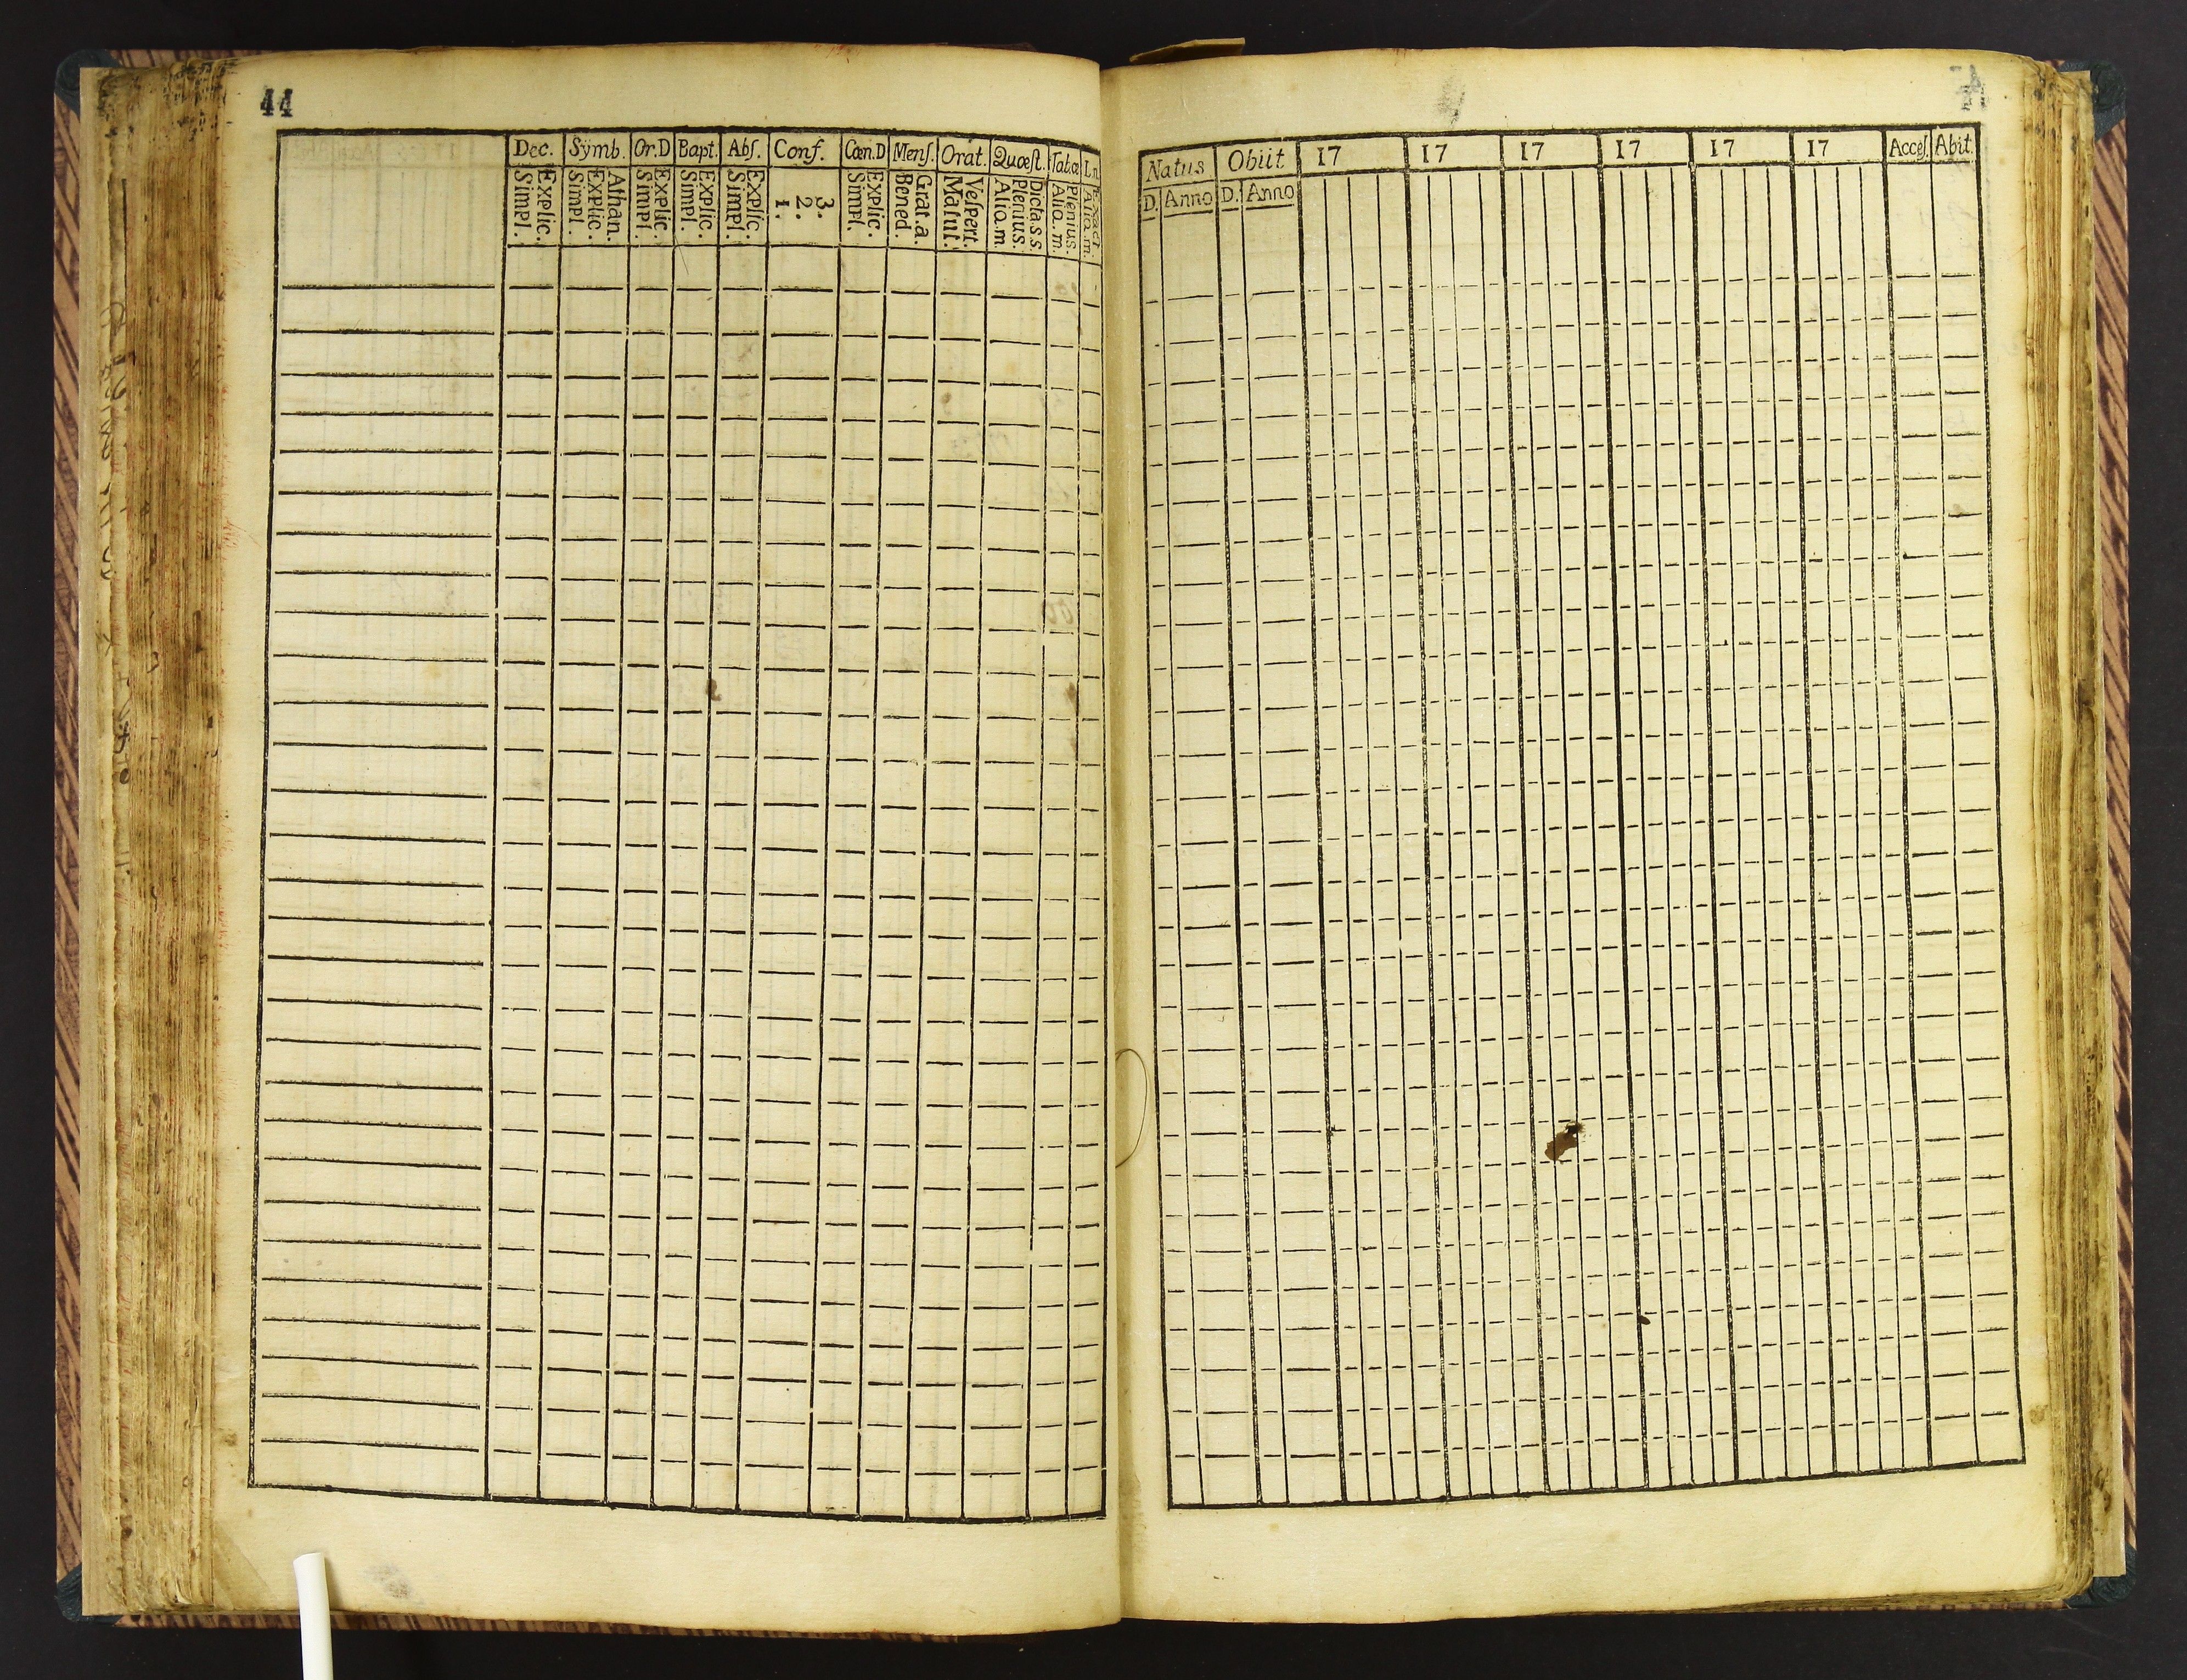 44
Dec. Sÿmb. Or.D Bapt. Abſ. Conf. Cœn.D Menſ. Orat. Quæſt. Tab.œ L.n.
Explic.
Simpl.
Athan.
Explic.
Simpl.
Explic.
Simpl.
Explic.
Simpl.
Explic.
Simpl.
3.
2.
1.
Explic.
Simpl.
Grat.a.
Bened.
Veſpert.
Matut.
Dicta.s.s.
Plenius.
Alia.m.
Plenius.
Alia.m.
Exact
Alia.m.
Natus Obiit 17 17 17 17 17 17 Acceſ. Abit.
D. Anno D. Anno